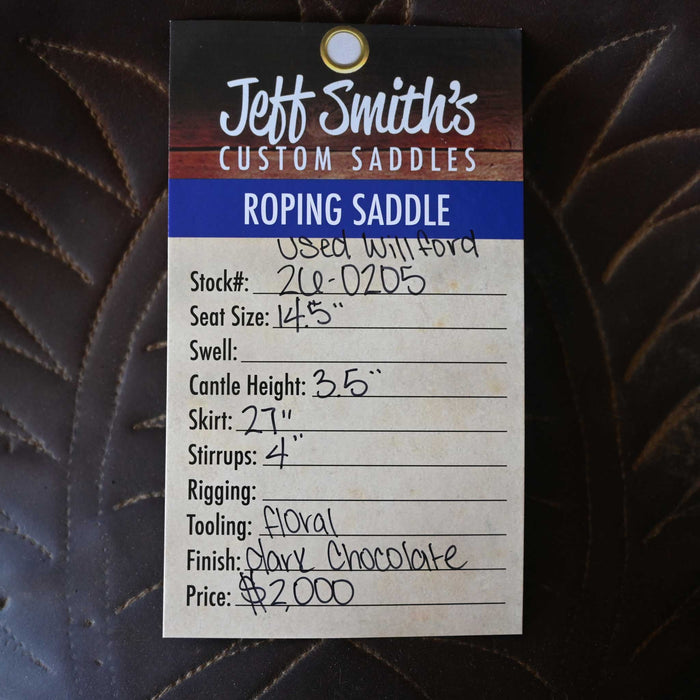 Jeff Smith's
CUSTOM SADDLES
ROPING SADDLE
Used Willford
Stock#: 26-0205
Seat Size: 14.5"
Swell:
Cantle Height: 3.5"
Skirt: 27"
Stirrups: 4"
Rigging:
Tooling: floral
Finish: dark Chocolate
Price: $2,000